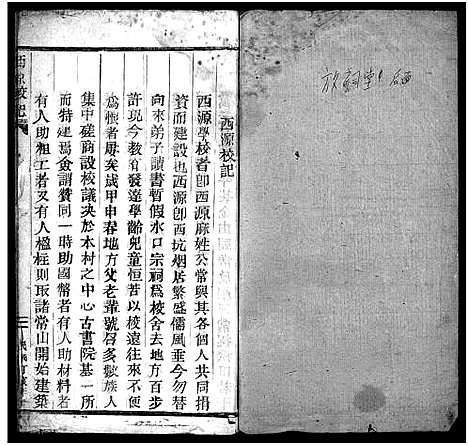 放祠堂
西源校記
西源學校者卽西源麻姓公常與其各個人共同捐
資而建設也西源卽西坑烟居繁盛儒風垂今勿替
向來弟子讀書暫假水口宗祠爲校舍去地方百步
許現今教育發達學齡兒童恒苦以校遠往來不便
爲恨者毋矣歲甲申春地方父老輩號召多數族人
集中磋商設校議决於本村之中心古書院基一所
而特建焉僉謂贊同一時助國幣者有人助材料者
有人助粗工者又有人楹柱則取諸常山開始建築
西源校記